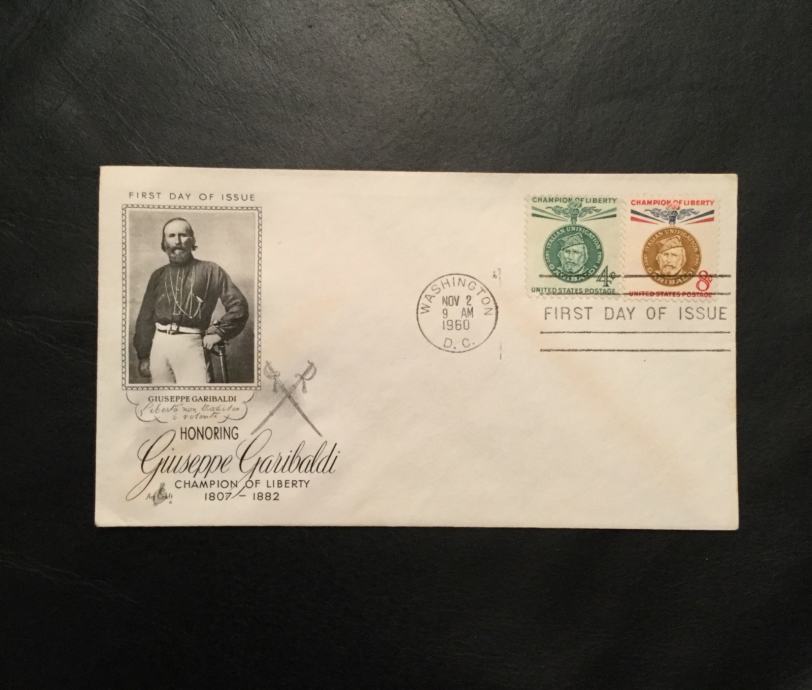 FIRST DAY OF ISSUE
GIUSEPPE GARIBALDI
Libertà non tradisce
i volenti
HONORING
Giuseppe Garibaldi
CHAMPION OF LIBERTY
1807 – 1882
Art Craft
WASHINGTON
NOV 2
9 AM
1960
D. C.
CHAMPION OF LIBERTY
ITALIAN UNIFICATION
GARIBALDI
4¢
UNITED STATES POSTAGE
CHAMPION OF LIBERTY
ITALIAN UNIFICATION
GARIBALDI
8¢
UNITED STATES POSTAGE
FIRST DAY OF ISSUE